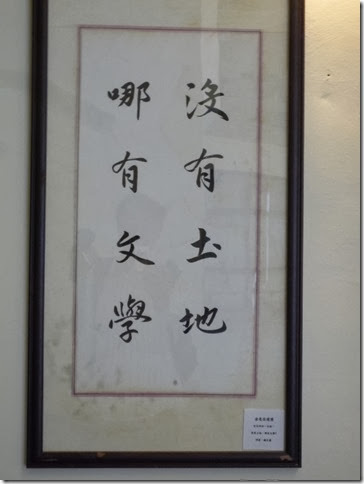 沒有土地
哪有文學